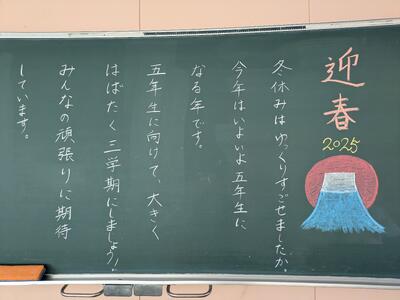 迎春
2025
冬休みはゆっくりすごせましたか。
今年はいよいよ五年生に
なる年です。
五年生に向けて、大きく
はばたく三学期にしましょう!
みんなの頑張りに期待
しています。